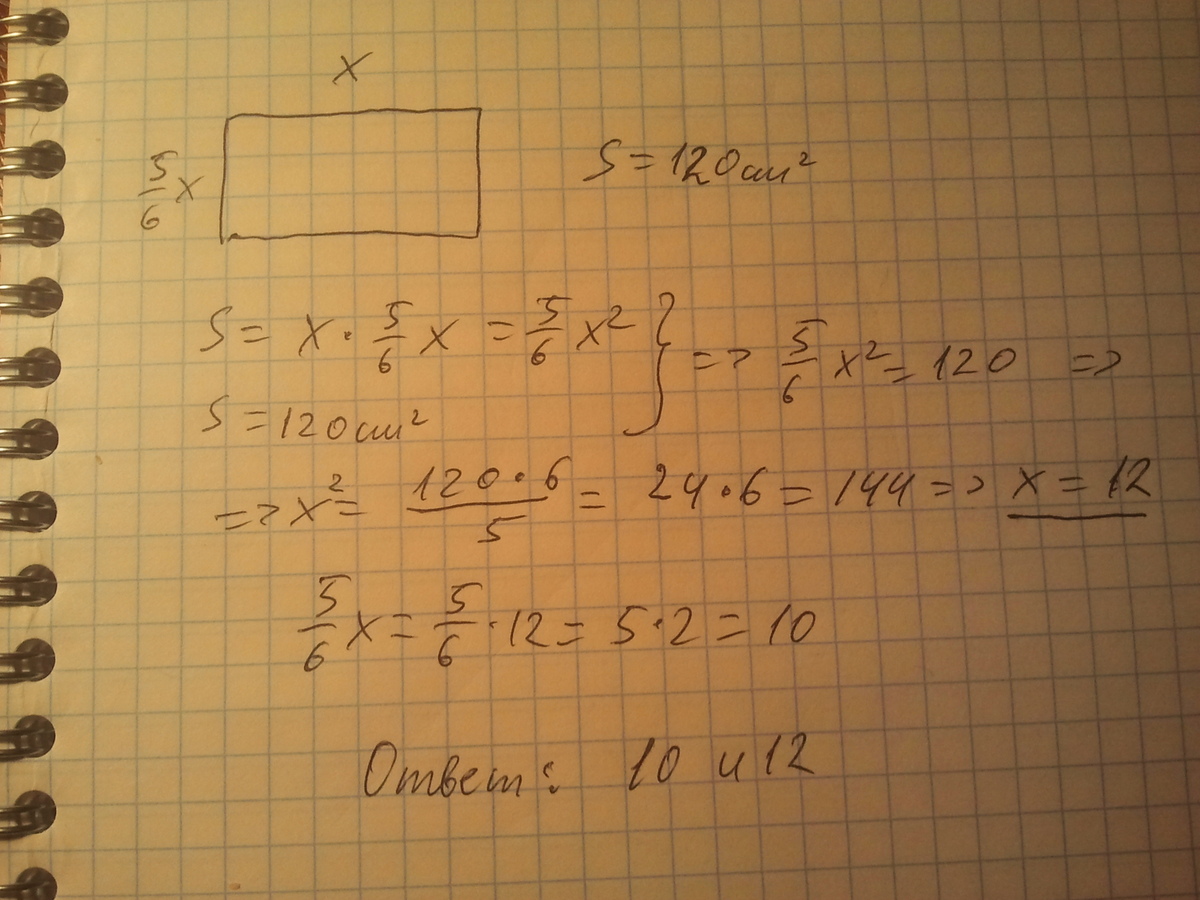 x
5/6 x
S = 120 см²
S = x · 5/6 x = 5/6 x² } => 5/6 x² = 120 =>
S = 120 см²
=> x² = 120·6/5 = 24·6 = 144 => x = 12
5/6 x = 5/6 · 12 = 5·2 = 10
Ответ: 10 и 12